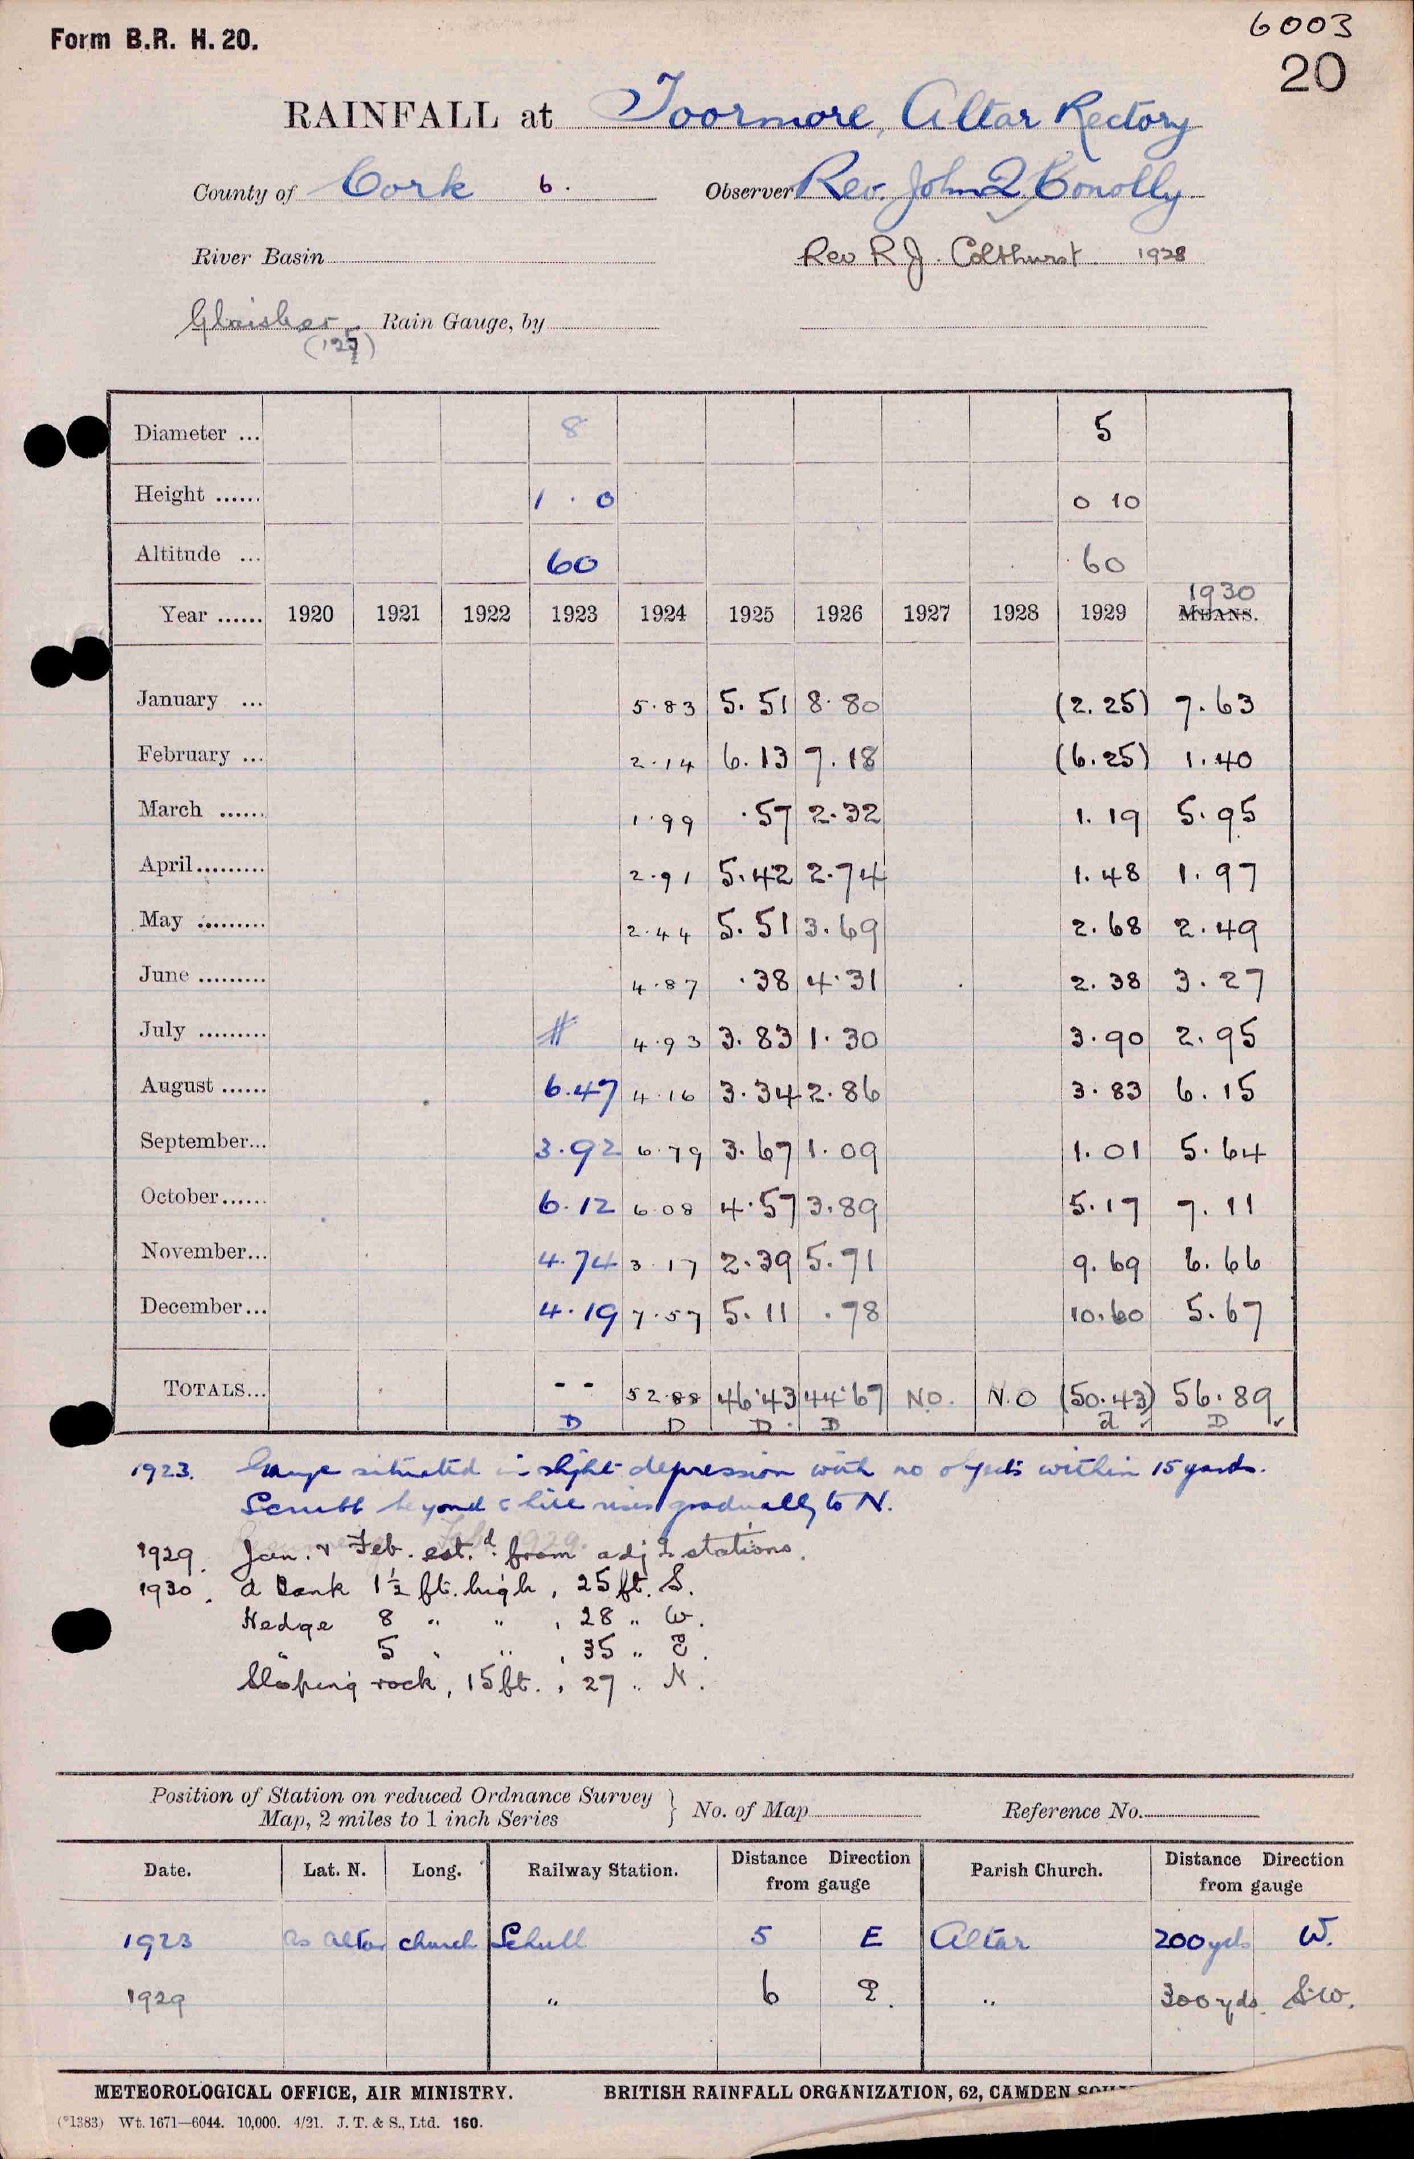 6003
Form B.R. H. 20.
20
RAINFALL at Toormore, Altar Rectory
County of Cork 6. Observer Rev. John Q Conolly
River Basin Rev R J. Colthurst 1928
Glaisher Rain Gauge, by
Diameter ... 8 5
Height ...... 1 . 0 0 10
Altitude ... 60 60
1930
Year ...... 1920 1921 1922 1923 1924 1925 1926 1927 1928 1929 MEANS.
January ... 5.83 5.51 8.80 (2.25) 7.63
February ... 2.14 6.13 7.18 (6.25) 1.40
March ...... 1.99 .57 2.32 1.19 5.95
April ......... 2.91 5.42 2.74 1.48 1.97
May ......... 2.44 5.51 3.69 2.68 2.49
June ......... 4.87 .38 4.31 2.38 3.27
July ......... # 4.93 3.83 1.30 3.90 2.95
August ...... 6.47 4.16 3.34 2.86 3.83 6.15
September... 3.92 6.79 3.67 1.09 1.01 5.64
October...... 6.12 6.08 4.57 3.89 5.17 7.11
November... 4.74 3.17 2.39 5.71 9.69 6.66
December... 4.19 7.57 5.11 .78 10.60 5.67
TOTALS... - - 52.88 46.43 44.67 N.O. N.O (50.43) 56.89
D D D. D d D
1923. Gauge situated in slight depression with no objects within 15 yards.
Scrub beyond & hill rises gradually to N.
1929. Jan. & Feb. est.d from adj. stations.
1930. a Bank 1½ ft. high, 25 ft. S.
Hedge 8 " " , 28 " W.
" 5 " " , 35 " E.
Sloping rock, 15 ft. , 27 " N.
Position of Station on reduced Ordnance Survey
Map, 2 miles to 1 inch Series } No. of Map Reference No.
Date. Lat. N. Long. Railway Station. Distance Direction from gauge Parish Church. Distance Direction from gauge
1923 As Altar church Schull 5 E Altar 200 yds W.
1929 " 6 E. " 300 yds. S.W.
METEOROLOGICAL OFFICE, AIR MINISTRY. BRITISH RAINFALL ORGANIZATION, 62, CAMDEN
(*1383) Wt. 1671—6044. 10,000. 4/21. J. T. & S., Ltd. 160.